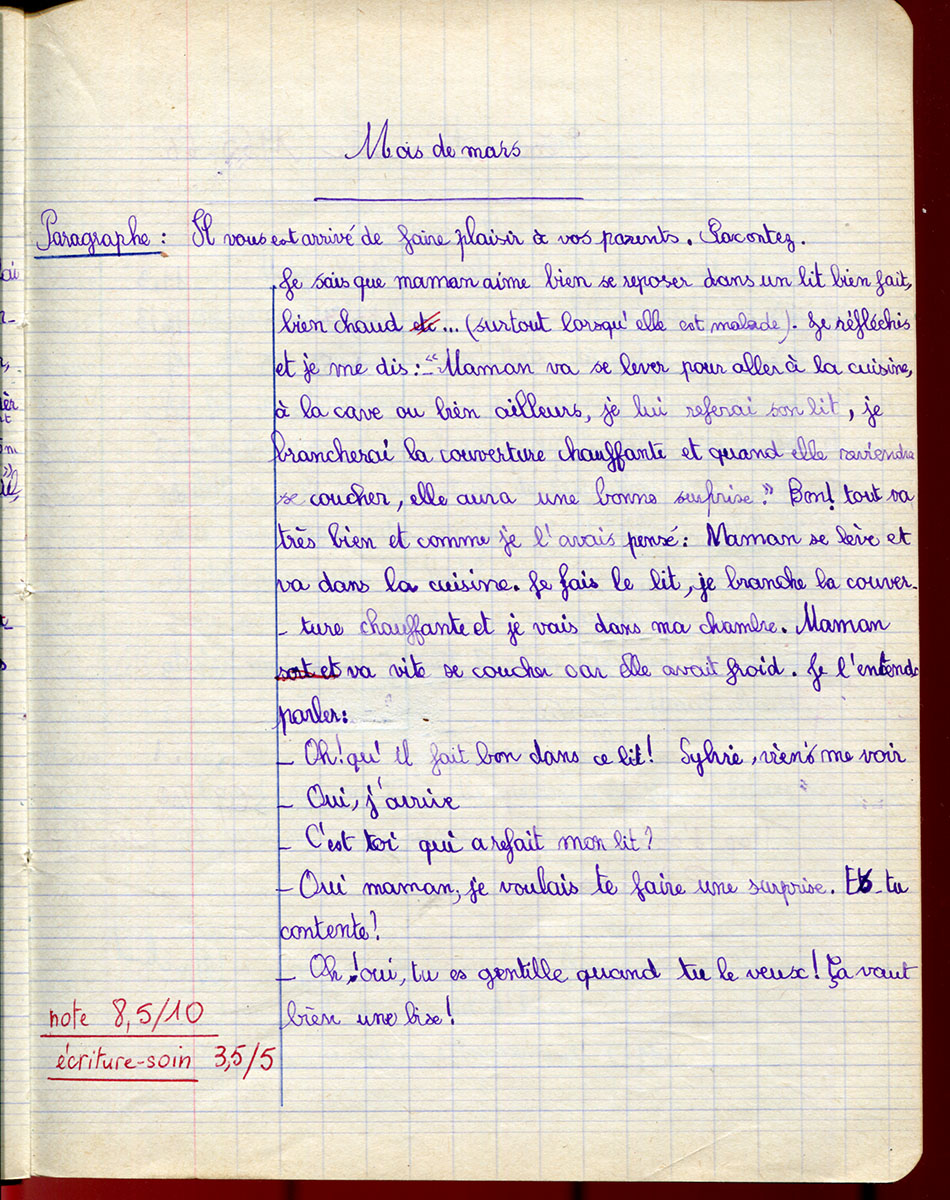 Mois de mars
Paragraphe : Il vous est arrivé de faire plaisir à vos parents. Racontez.
Je sais que maman aime bien se reposer dans un lit bien fait,
bien chaud etc... (surtout lorsqu'elle est malade). Je réfléchis
et je me dis : "Maman va se lever pour aller à la cuisine,
à la cave ou bien ailleurs, je lui referai son lit, je
brancherai la couverture chauffante et quand elle reviendra
se coucher, elle aura une bonne surprise." Bon! tout va
très bien et comme je l'avais pensé : Maman se lève et
va dans la cuisine. Je fais le lit, je branche la couver-
-ture chauffante et je vais dans ma chambre. Maman
sort et va vite se coucher car elle avait froid. Je l'entends
parler :
_ Oh! qu'il fait bon dans ce lit! Sylvie, viens me voir
_ Oui, j'arrive
_ C'est toi qui a refait mon lit?
_ Oui maman, je voulais te faire une surprise. Es-tu
contente?
_ Oh! oui, tu es gentille quand tu le veux! Ça vaut
bien une bise!
note 8,5/10
écriture-soin 3,5/5